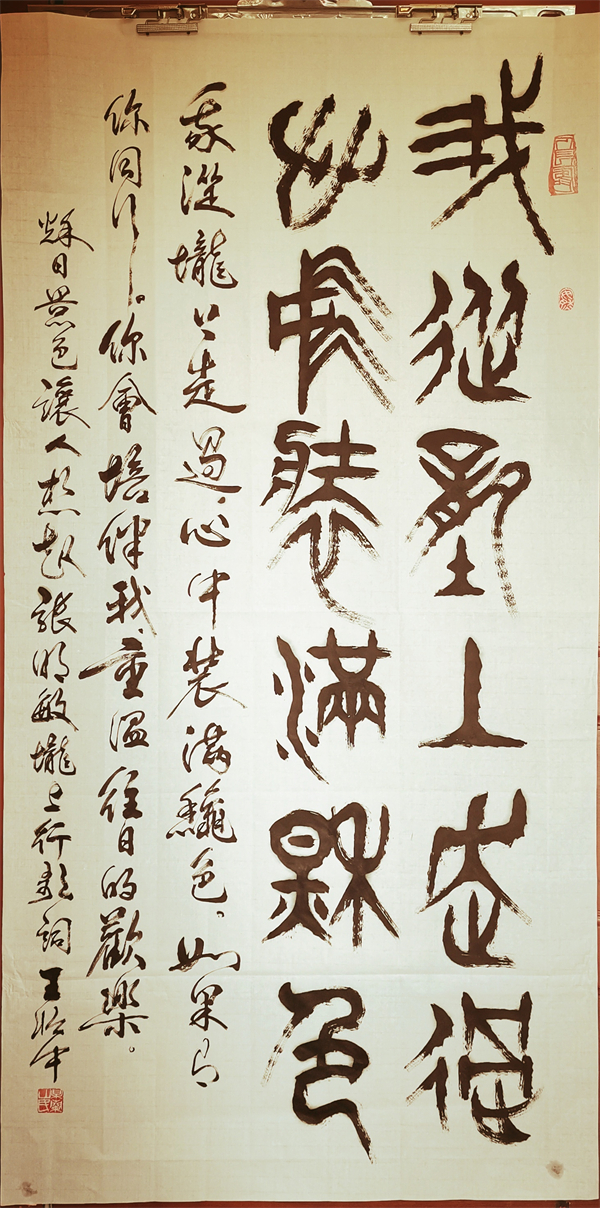 我從壟上走過
心中裝滿秋色
我從壠上走過，心中裝滿龝色，如果有
你同行，你會培伴我，重溫往日的歡樂。
秌日景色讓人想起張明敏壠上行歌詞 王